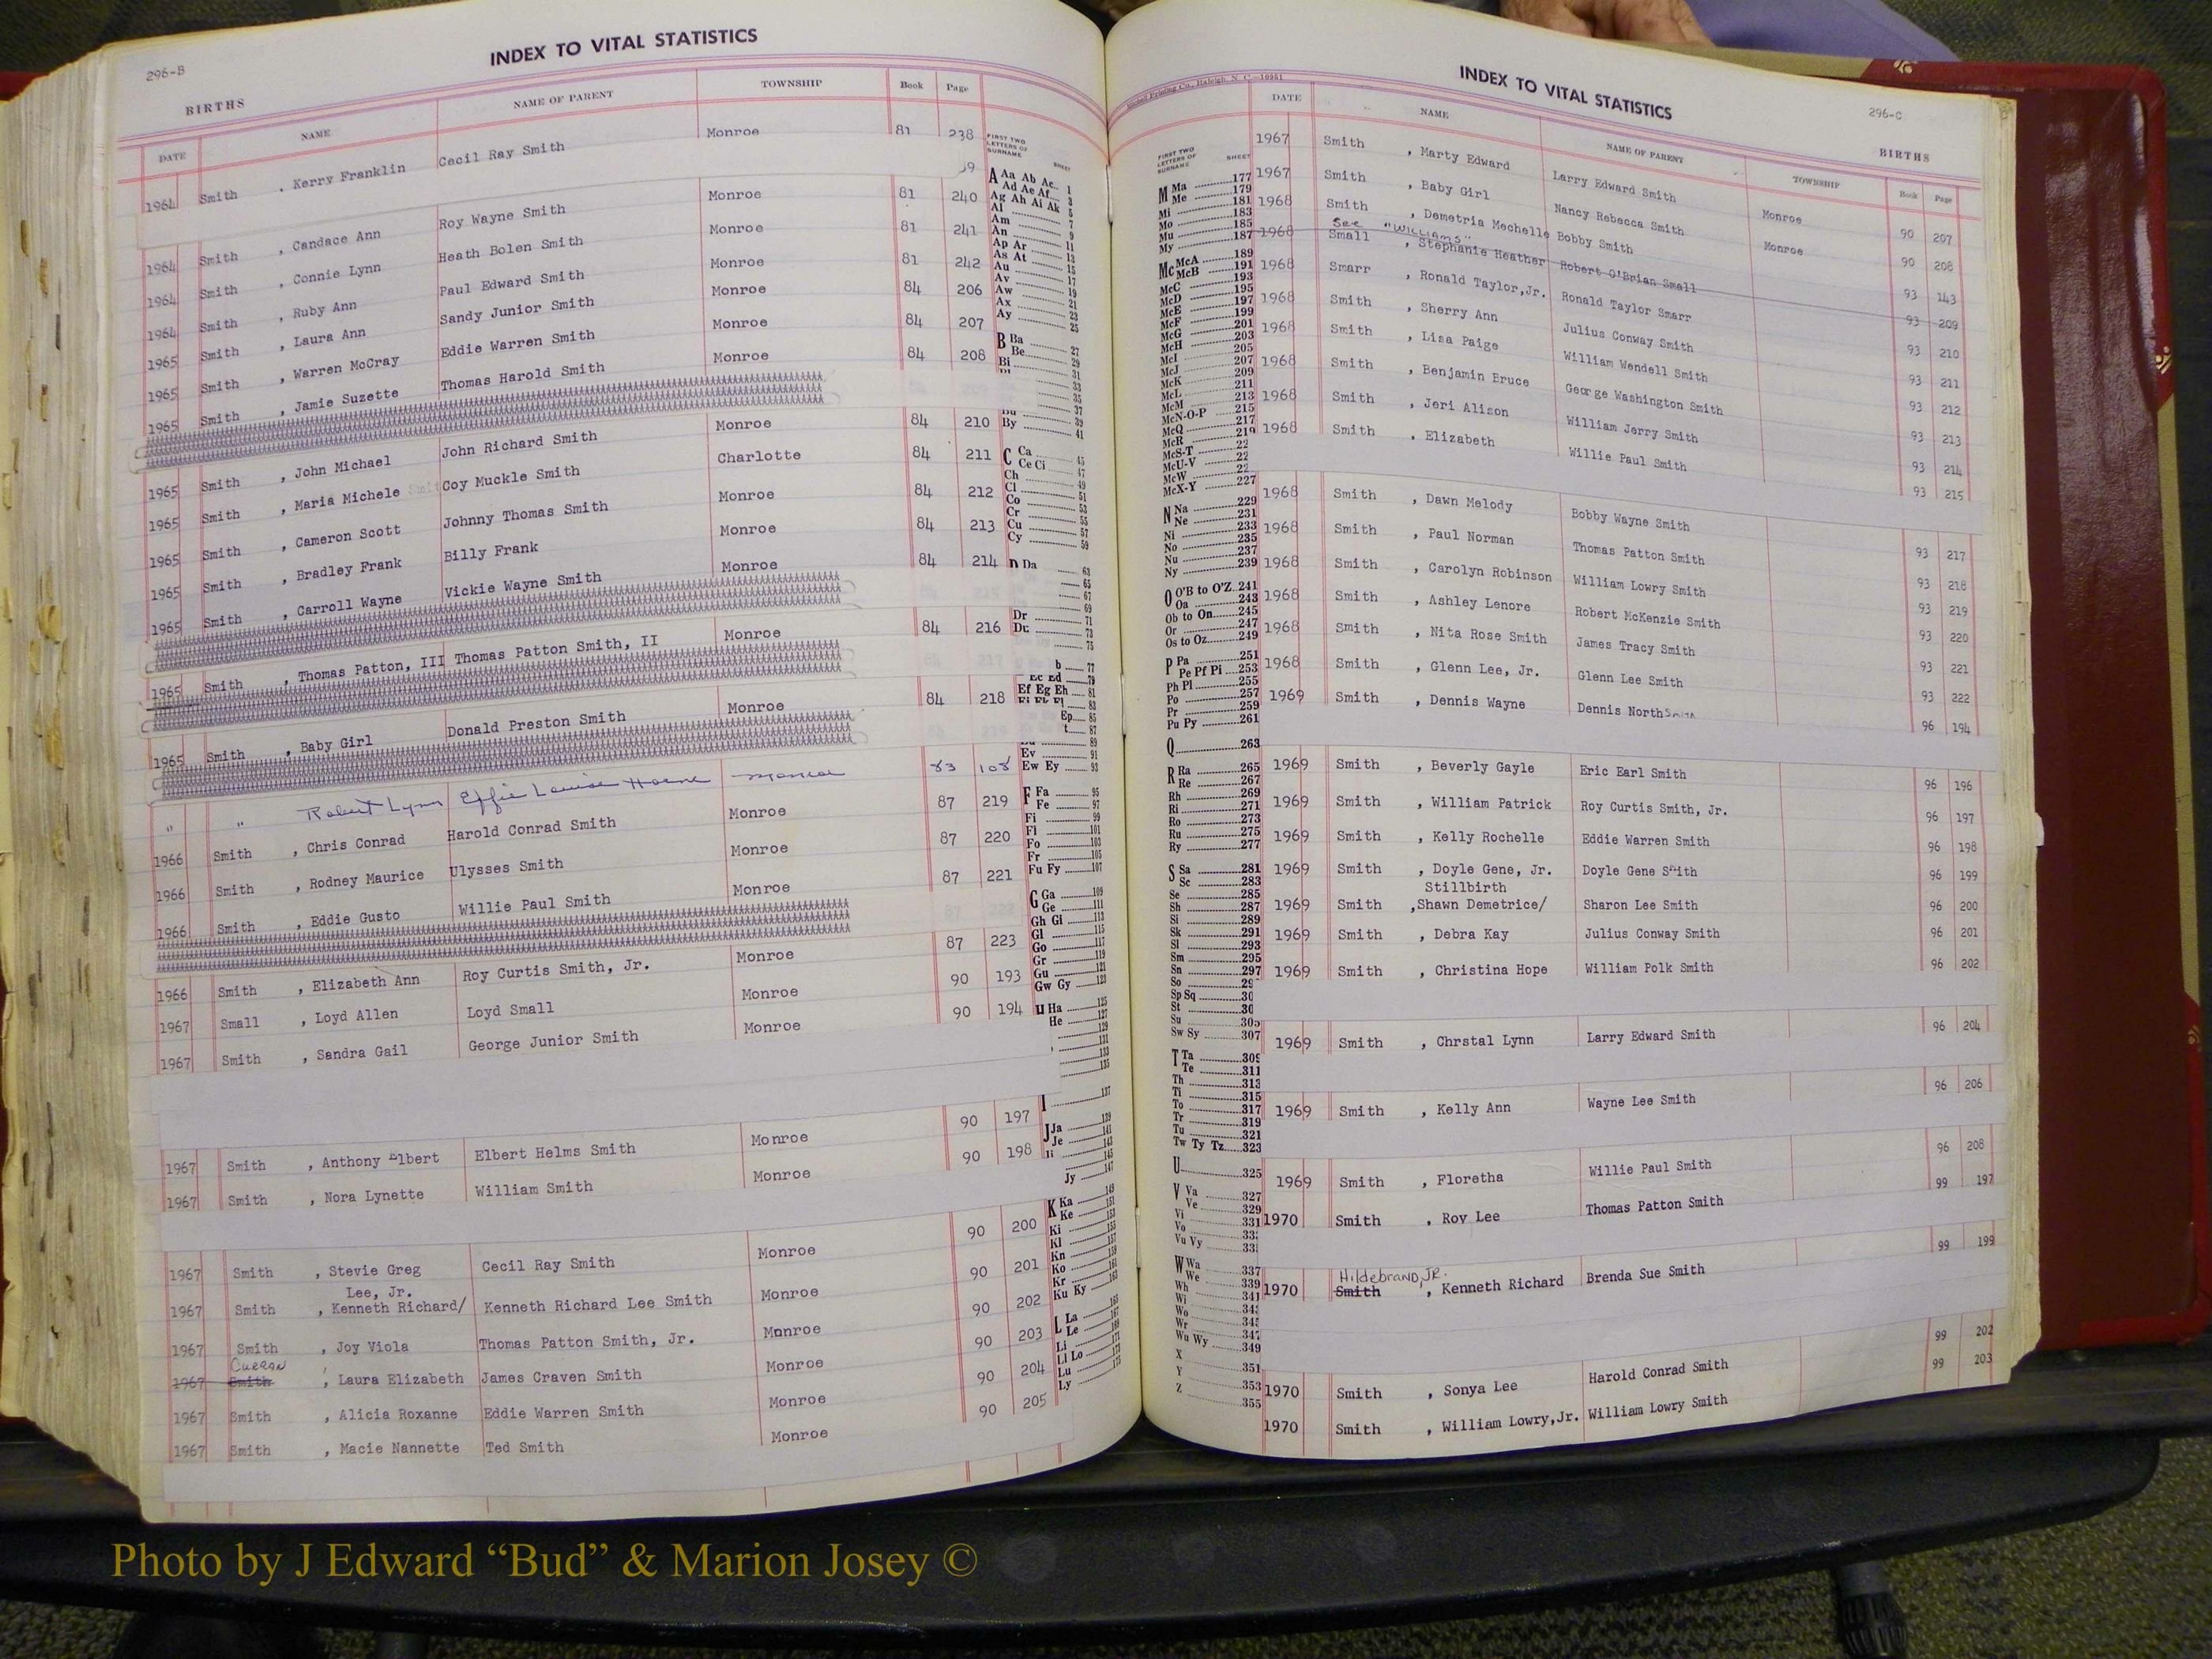 296-B
INDEX TO VITAL STATISTICS
BIRTHS
DATE NAME NAME OF PARENT TOWNSHIP Book Page
1964 Smith , Kerry Franklin Cecil Ray Smith Monroe 81 238
1964 Smith , Candace Ann Roy Wayne Smith Monroe 81 240
1964 Smith , Connie Lynn Heath Bolen Smith Monroe 81 241
1964 Smith , Ruby Ann Paul Edward Smith Monroe 81 242
1965 Smith , Laura Ann Sandy Junior Smith Monroe 84 206
1965 Smith , Warren McCray Eddie Warren Smith Monroe 84 207
1965 Smith , Jamie Suzette Thomas Harold Smith Monroe 84 208
1965 Smith , John Michael John Richard Smith Monroe 84 210
1965 Smith , Maria Michele Coy Muckle Smith Charlotte 84 211
1965 Smith , Cameron Scott Johnny Thomas Smith Monroe 84 212
1965 Smith , Bradley Frank Billy Frank Monroe 84 213
1965 Smith , Carroll Wayne Vickie Wayne Smith Monroe 84 214
1965 Smith , Thomas Patton, III Thomas Patton Smith, II Monroe 84 216
1965 Smith , Baby Girl Donald Preston Smith Monroe 84 218
" " Robert Lynn Effie Louise Horne Monroe 83 108
1966 Smith , Chris Conrad Harold Conrad Smith Monroe 87 219
1966 Smith , Rodney Maurice Ulysses Smith Monroe 87 220
1966 Smith , Eddie Gusto Willie Paul Smith Monroe 87 221
1966 Smith , Elizabeth Ann Roy Curtis Smith, Jr. Monroe 87 223
1967 Small , Loyd Allen Loyd Small Monroe 90 193
1967 Smith , Sandra Gail George Junior Smith Monroe 90 194
1967 Smith , Anthony Elbert Elbert Helms Smith Monroe 90 197
1967 Smith , Nora Lynette William Smith Monroe 90 198
1967 Smith , Stevie Greg Cecil Ray Smith Monroe 90 200
Lee, Jr.
1967 Smith , Kenneth Richard/ Kenneth Richard Lee Smith Monroe 90 201
1967 Smith , Joy Viola Thomas Patton Smith, Jr. Monroe 90 202
Curran
1967 Smith , Laura Elizabeth James Craven Smith Monroe 90 203
1967 Smith , Alicia Roxanne Eddie Warren Smith Monroe 90 204
1967 Smith , Macie Nannette Ted Smith Monroe 90 205
FIRST TWO LETTERS OF SURNAME SHEET
A Aa Ab Ac 1
Ad Ae Af 3
Ag Ah Ai Ak 5
Al 7
Am 9
An
Ap Ar 11
As At 13
Au 15
Av 17
Aw 19
Ax 21
Ay 23
25
B Ba 27
Be 29
Bi 31
33
35
37
By 39
41
C Ca 45
Ce Ci 47
Ch 49
Cl 51
Co 53
Cr 55
Cu 57
Cy 59
D Da 63
65
67
69
Dr 71
73
75
77
Ec Ed 79
Ef Eg Eh 81
83
Ep 85
87
89
Ev 91
Ew Ey 93
F Fa 95
Fe 97
Fi 99
Fl 101
Fo 103
Fr 105
Fu Fy 107
G Ga 109
Ge 111
Gh Gi 113
Gl 115
Go 117
Gr 119
Gu 121
Gw Gy 123
H Ha 125
He 127
129
131
133
135
I 137
J Ja 139
Je 141
143
145
Jy 147
K Ka 149
Ke 151
Ki 153
Kl 155
Kn 157
Ko 159
Kr 161
Ku Ky 163
L La 165
Le 167
Li 169
Ll Lo 171
Lu 173
Ly 175
INDEX TO VITAL STATISTICS
296-C
BIRTHS
DATE NAME NAME OF PARENT TOWNSHIP Book Page
1967 Smith , Marty Edward Larry Edward Smith Monroe 90 207
1967 Smith , Baby Girl Nancy Rebecca Smith Monroe 90 208
1968 Smith , Demetria Mechelle Bobby Smith 93 143
See "Williams"
1968 Small , Stephanie Heather Robert O'Brian Small 93 209
1968 Smarr , Ronald Taylor,Jr. Ronald Taylor Smarr 93 210
1968 Smith , Sherry Ann Julius Conway Smith 93 211
1968 Smith , Lisa Paige William Wendell Smith 93 212
1968 Smith , Benjamin Bruce George Washington Smith 93 213
1968 Smith , Jeri Alison William Jerry Smith 93 214
1968 Smith , Elizabeth Willie Paul Smith 93 215
1968 Smith , Dawn Melody Bobby Wayne Smith 93 217
1968 Smith , Paul Norman Thomas Patton Smith 93 218
1968 Smith , Carolyn Robinson William Lowry Smith 93 219
1968 Smith , Ashley Lenore Robert McKenzie Smith 93 220
1968 Smith , Nita Rose Smith James Tracy Smith 93 221
1968 Smith , Glenn Lee, Jr. Glenn Lee Smith 93 222
1969 Smith , Dennis Wayne Dennis North Smith 96 194
1969 Smith , Beverly Gayle Eric Earl Smith 96 196
1969 Smith , William Patrick Roy Curtis Smith, Jr. 96 197
1969 Smith , Kelly Rochelle Eddie Warren Smith 96 198
1969 Smith , Doyle Gene, Jr. Doyle Gene Smith 96 199
Stillbirth
1969 Smith ,Shawn Demetrice/ Sharon Lee Smith 96 200
1969 Smith , Debra Kay Julius Conway Smith 96 201
1969 Smith , Christina Hope William Polk Smith 96 202
1969 Smith , Chrstal Lynn Larry Edward Smith 96 204
1969 Smith , Kelly Ann Wayne Lee Smith 96 206
1969 Smith , Floretha Willie Paul Smith 96 208
1970 Smith , Roy Lee Thomas Patton Smith 99 197
Hildebrand, JR.
1970 Smith , Kenneth Richard Brenda Sue Smith 99 199
1970 Smith , Sonya Lee Harold Conrad Smith 99 202
1970 Smith , William Lowry,Jr. William Lowry Smith 99 203
FIRST TWO LETTERS OF SURNAME SHEET
M Ma 177
Me 179
Mi 181
Mo 183
Mu 185
My 187
Mc McA 189
McB 191
McC 193
McD 195
McE 197
McF 199
McG 201
McH 203
McI 205
McJ 207
McK 209
McL 211
McM 213
McN-O-P 215
McQ 217
McR 219
McS-T
McU-V
McW
McX-Y 227
N Na 229
Ne 231
Ni 233
No 235
Nu 237
Ny 239
O O'B to O'Z 241
Oa 243
Ob to On 245
Or 247
Os to Oz 249
P Pa 251
Pe Pf Pi 253
Ph Pl 255
Po 257
Pr 259
Pu Py 261
Q 263
R Ra 265
Re 267
Rh 269
Ri 271
Ro 273
Ru 275
Ry 277
S Sa 281
Sc 283
Se 285
Sh 287
Si 289
Sk 291
Sl 293
Sm 295
Sn 297
So
Sp Sq
St
Su 305
Sw Sy 307
T Ta 309
Te 311
Th 313
Ti 315
To 317
Tr 319
Tu 321
Tw Ty Tz 323
U 325
V Va 327
Ve 329
Vi 331
Vo
Vu Vy
W Wa 337
We 339
Wh 341
Wi
Wo 345
Wr 347
Wu Wy 349
X 351
Y 353
Z 355
Photo by J Edward “Bud” & Marion Josey ©